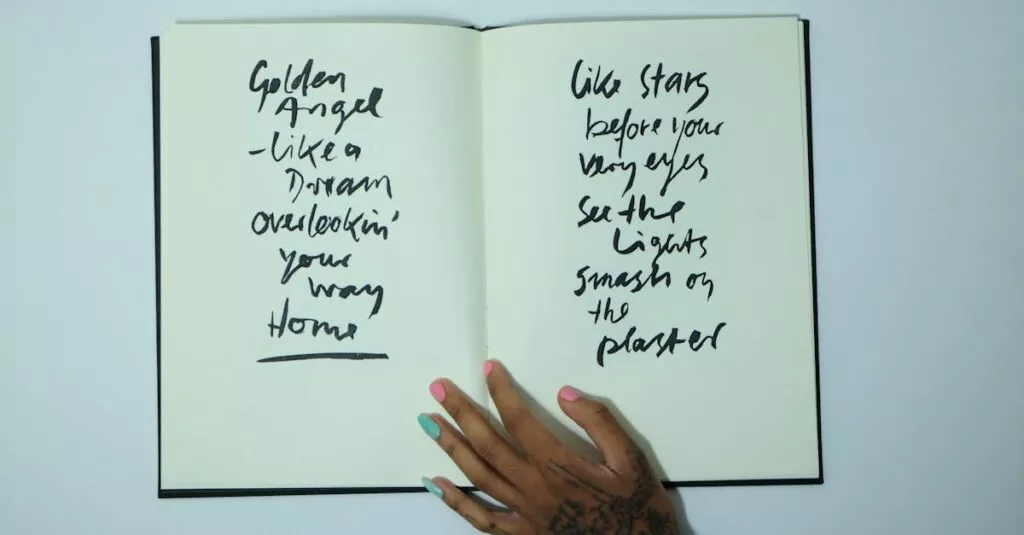 Golden
Angel
- Like a
Dream
overlookin'
your
way
Home
Like Stars
before your
very eyes
See the
Lights
smash on
the
plaster